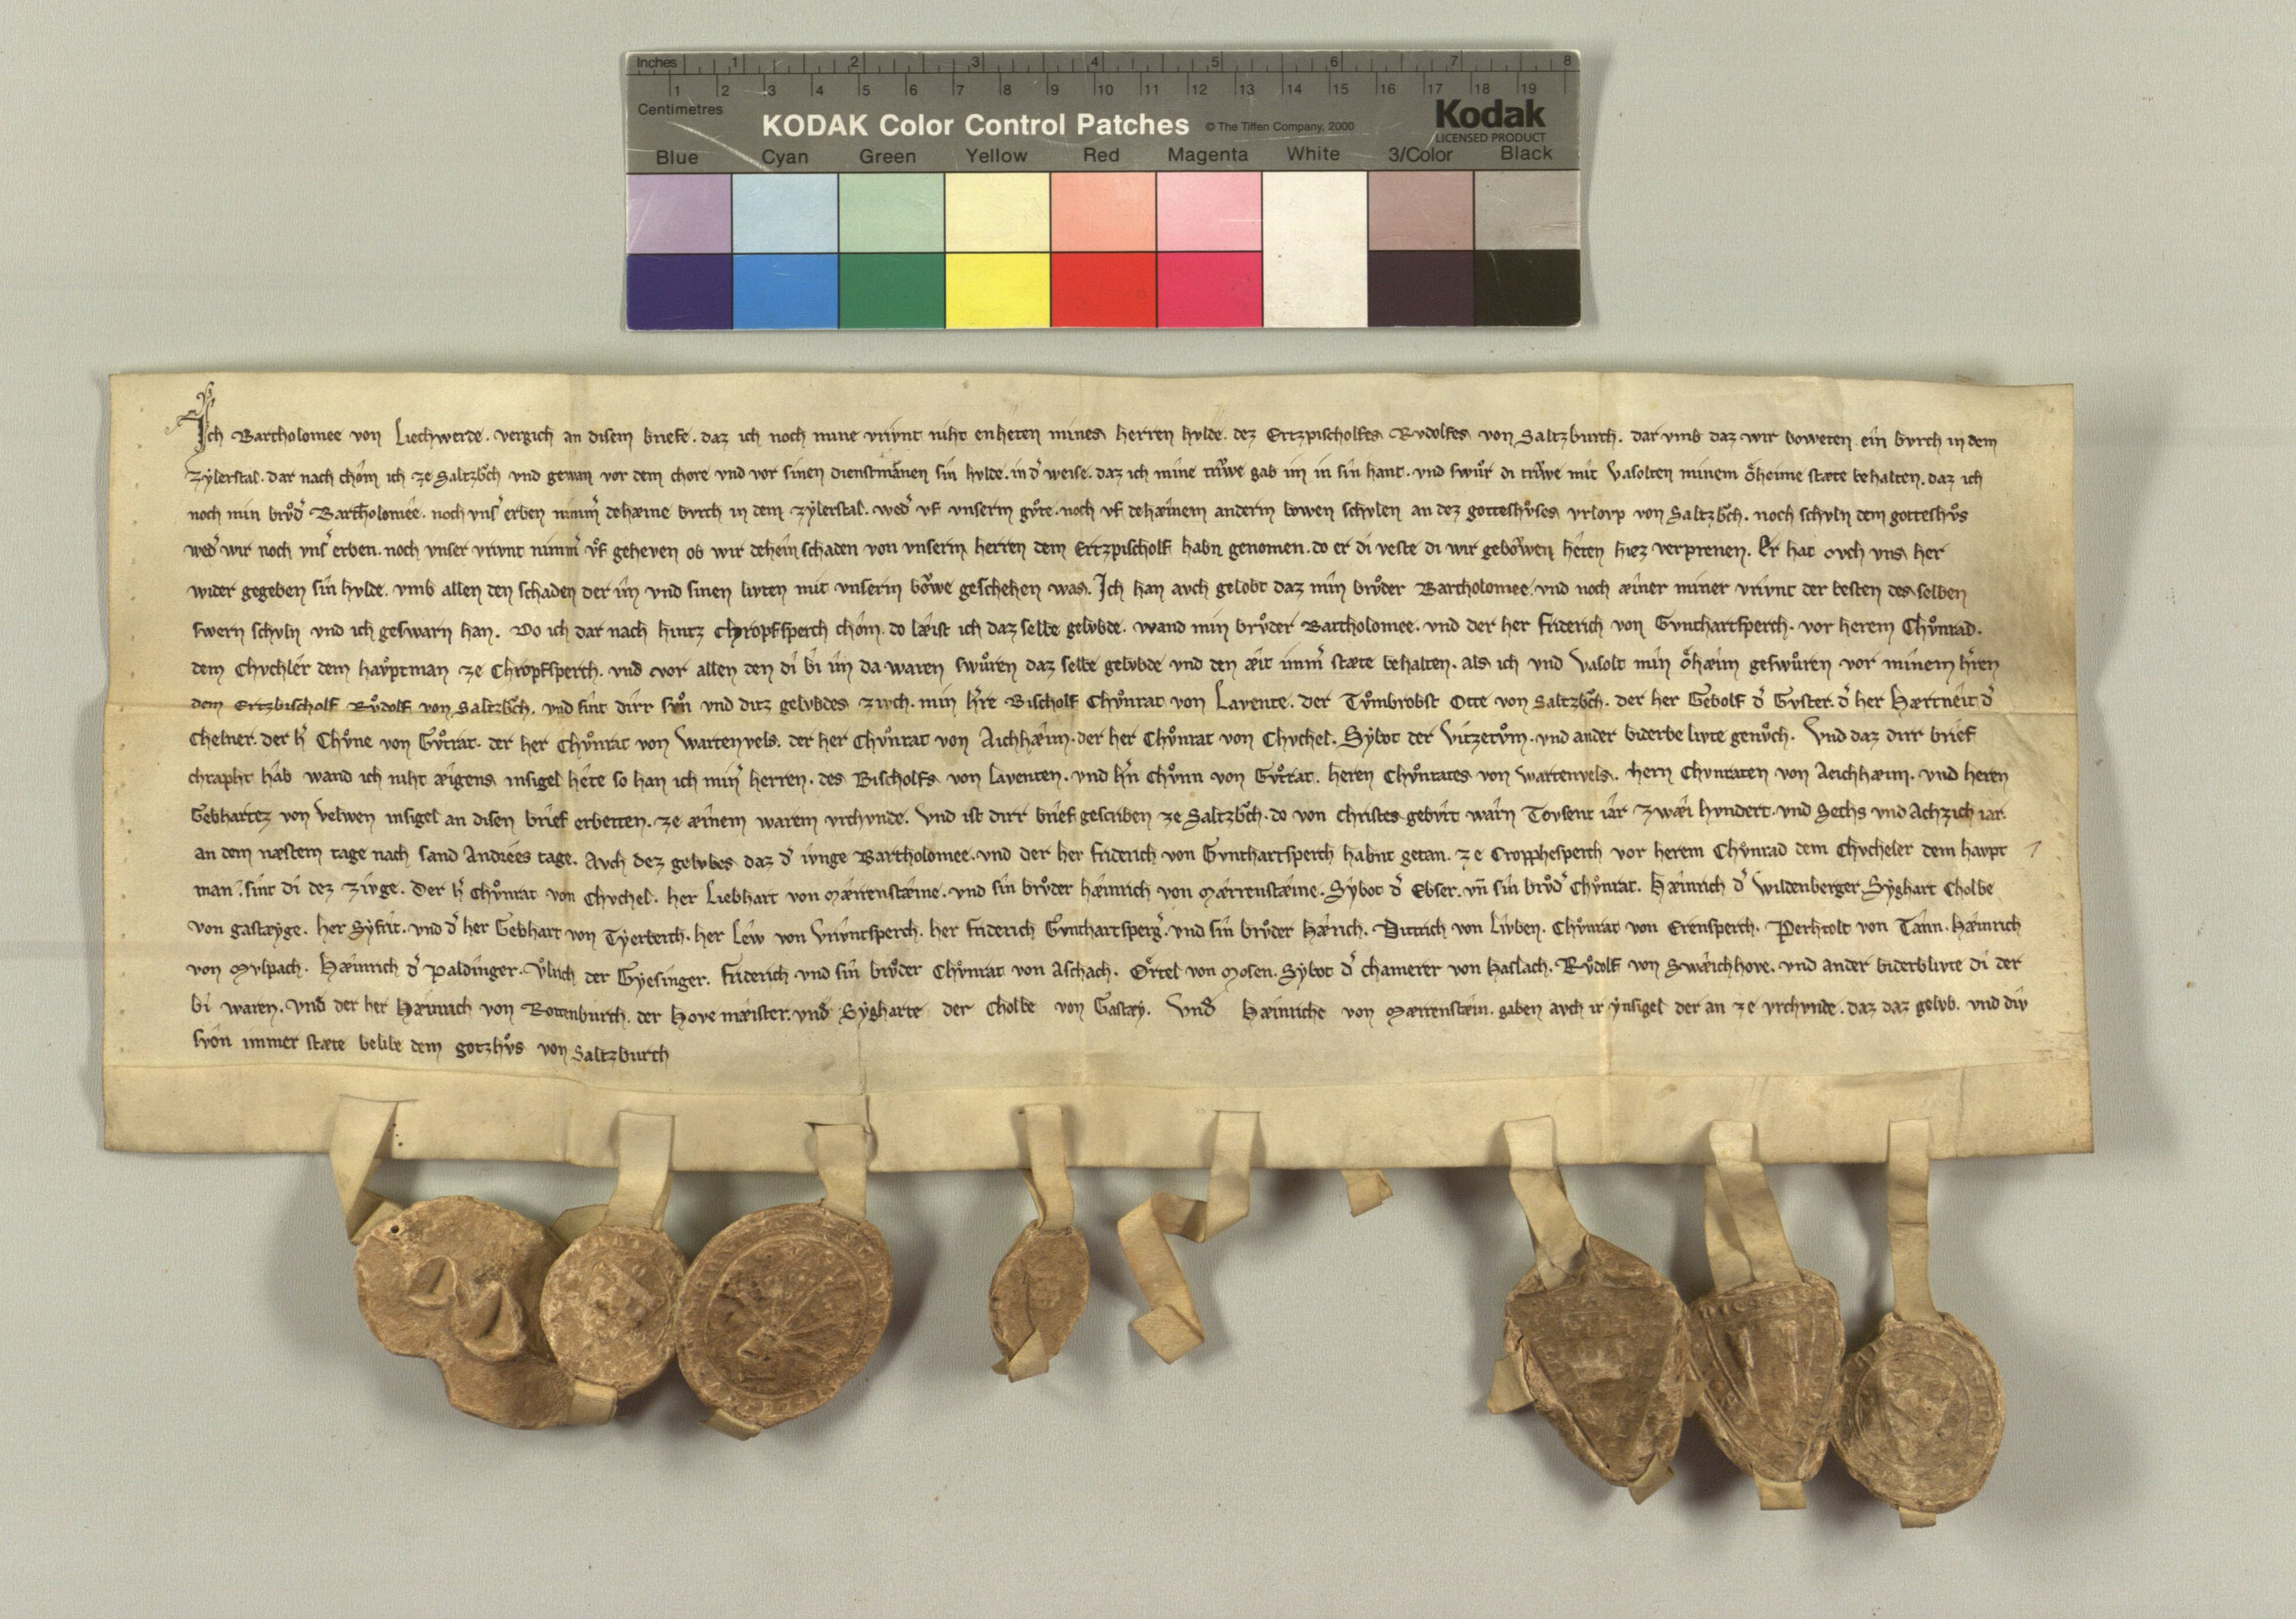 Inches 1 2 3 4 5 6 7 8
1 2 3 4 5 6 7 8 9 10 11 12 13 14 15 16 17 18 19
Centimetres
KODAK Color Control Patches © The Tiffen Company, 2000 Kodak
LICENSED PRODUCT
Blue Cyan Green Yellow Red Magenta White 3/Color Black
Ich Bartholomee von Liechwerde. vergich an disem briefe. daz ich noch mine vrivnt niht enheten mines herren hvlde. dez Ertzpischolfes Rvdolfes von Saltzburch. dar vmb daz wir boweten ein bvrch in dem
Zylerstal. dar nach chom ich ze Saltzbch und gewan vor dem chore vnd vor sinen dienstmannen sin hvlde. in d weise. daz ich mine triwe gab im in sin hant. vnd swuͦr di triwe mit Vasolten minem oͤheime stæte behalten. daz ich
noch min bruͦd Bartholomee. noch vns erben nimm dehæine bvrch in dem zylerstal. wed vf vnserm guͦte. noch vf dehæinem anderm bowen schvlen an dez gotteshvses vrlovp von Saltzbch. noch schvln dem gotteshvs
wed wir noch vns erben. noch vnser vrivnt nimm vf geheven ob wir dehein schaden von vnserm herren dem Ertzpischolf habn genomen. do er di veste di wir gebowen heten hiez verprenen. Er hat ovch vns her
wider gegeben sin hvlde. vmb allen den schaden der im vnd sinen livten mit vnserm bowe geschehen was. Ich han avch gelobt daz min bruͦder Bartholomee. vnd noch æiner miner vrivnt der besten des selben
swern schvln vnd ich geswarn han. Do ich dar nach hintz Chropfsperch chom. do læist ich daz selbe gelvbde. wand min bruͦder Bartholomee. vnd der her Friderich von Gvnthartsperch. vor herem Chuͦnrad.
dem Chvchler dem havptman ze Chropfsperch. vnd vor allen den di bi im da waren swuͦren daz selbe gelvbde vnd den æit imm stæte behalten. als ich vnd Vasolt min oͤhæim geswuͦren vor minem hren
dem Ertzbischolf Ruͦdolf von Saltzbch. vnd sint dirr svͦn vnd ditz gelvbdes zivch. min hre Bischolf Chuͦnrat von Lavente. der Tuͦmbrobst Otte von Saltzbch. der her Gebolf d Gvster. d her Hærtneit d
Chelner. der h Chuͦne von Guͦtrat. der her Chuͦnrat von Wartenvels. der her Chuͦnrat von Aichhæim. der her Chuͦnrat von Chvchel. Sybot der Vitzetuͦm. vnd ander biderbe livte genuͦch. Vnd daz dirr brief
chrapht hab wand ich niht æigens insigel hete so han ich min herren. des Bischolfs von Laventen. vnd hn Chuͦnn von Guͦtrat. heren Chuͦnrates von Wartenvels. hern Chvnraten von Aeichhæim. vnd heren
Gebhartez von Velwen insigel an disen brief erbetten. ze æinem warem vrchvnde. Vnd ist dirr brief gescriben ze Saltzbch. do von Christes gebvrt warn Tovsent iar zwæi hvndert. vnd Sechs vnd Achzich iar.
an dem næstem tage nach sand Andrees tage. Avch dez gelvbes daz d ivnge Bartholomee. vnd der her Friderich von Gvnthartsperch habnt getan. ze Cropphesperch vor herem Chuͦnrad dem Chvcheler dem havpt
man. sint di dez zivge. Der h Chuͦnrat von Chvchel. her Liebhart von Mærrenstæine. vnd sin bruͦder hæinrich von Mærrenstæine. Sybot d Ebser. vn sin bruͦd Chuͦnrat. Hæinrich d Wildenberger. Syghart Cholbe
von gastæyge. her Syfrit. vnd d her Gebhart von Tyerberch. her Lew von Vrivntsperch. her Friderich Gvnthartsperg. vnd sin bruͦder Hærich. Ditrich von Livben. Chuͦnrat von Erensperch. Perhtolt von Tann. Hæinrich
von Mvlpach. Hæinrich d Paldinger. Vlrich der Gyesinger. Friderich vnd sin bruͦder Chuͦnrat von Aschach. Ortel von Mosen. Sybot d chamerer von Haslach. Ruͦdolf von Swæichhove. vnd ander biderb livte di der
bi waren. vnd der her Hæinrich von Rottenburch. der Hove mæister. vnd Sygharte der Cholbe von Gastæy. Vnd Hæinriche von Mærrenstæin. gaben avch ir ynsigel der an ze vrchvnde. daz daz gelvb. vnd div
svon immer stæte belibe dem gotzhvs von Saltzburch